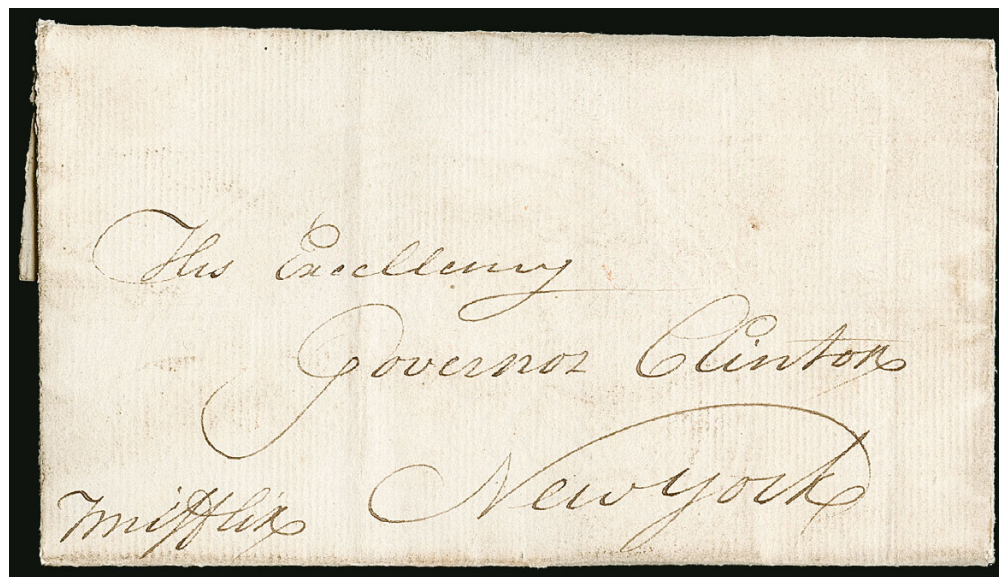 His Excellency
Governor Clinton
New York
Tmifflin